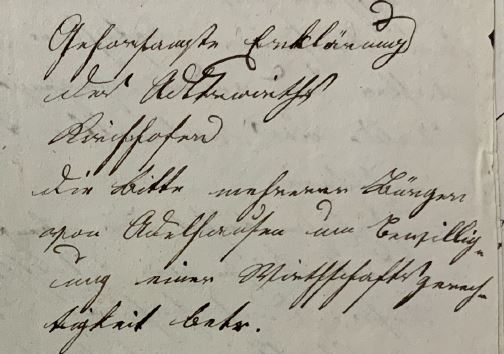 Gehorsamste Erklärung
des Adlerwirths
Kirchhofer
die Bitte mehrerer Bürger
von Adelhausen um Bewillig-
ung einer Wirthschaftsgerech-
tigkeit betr.